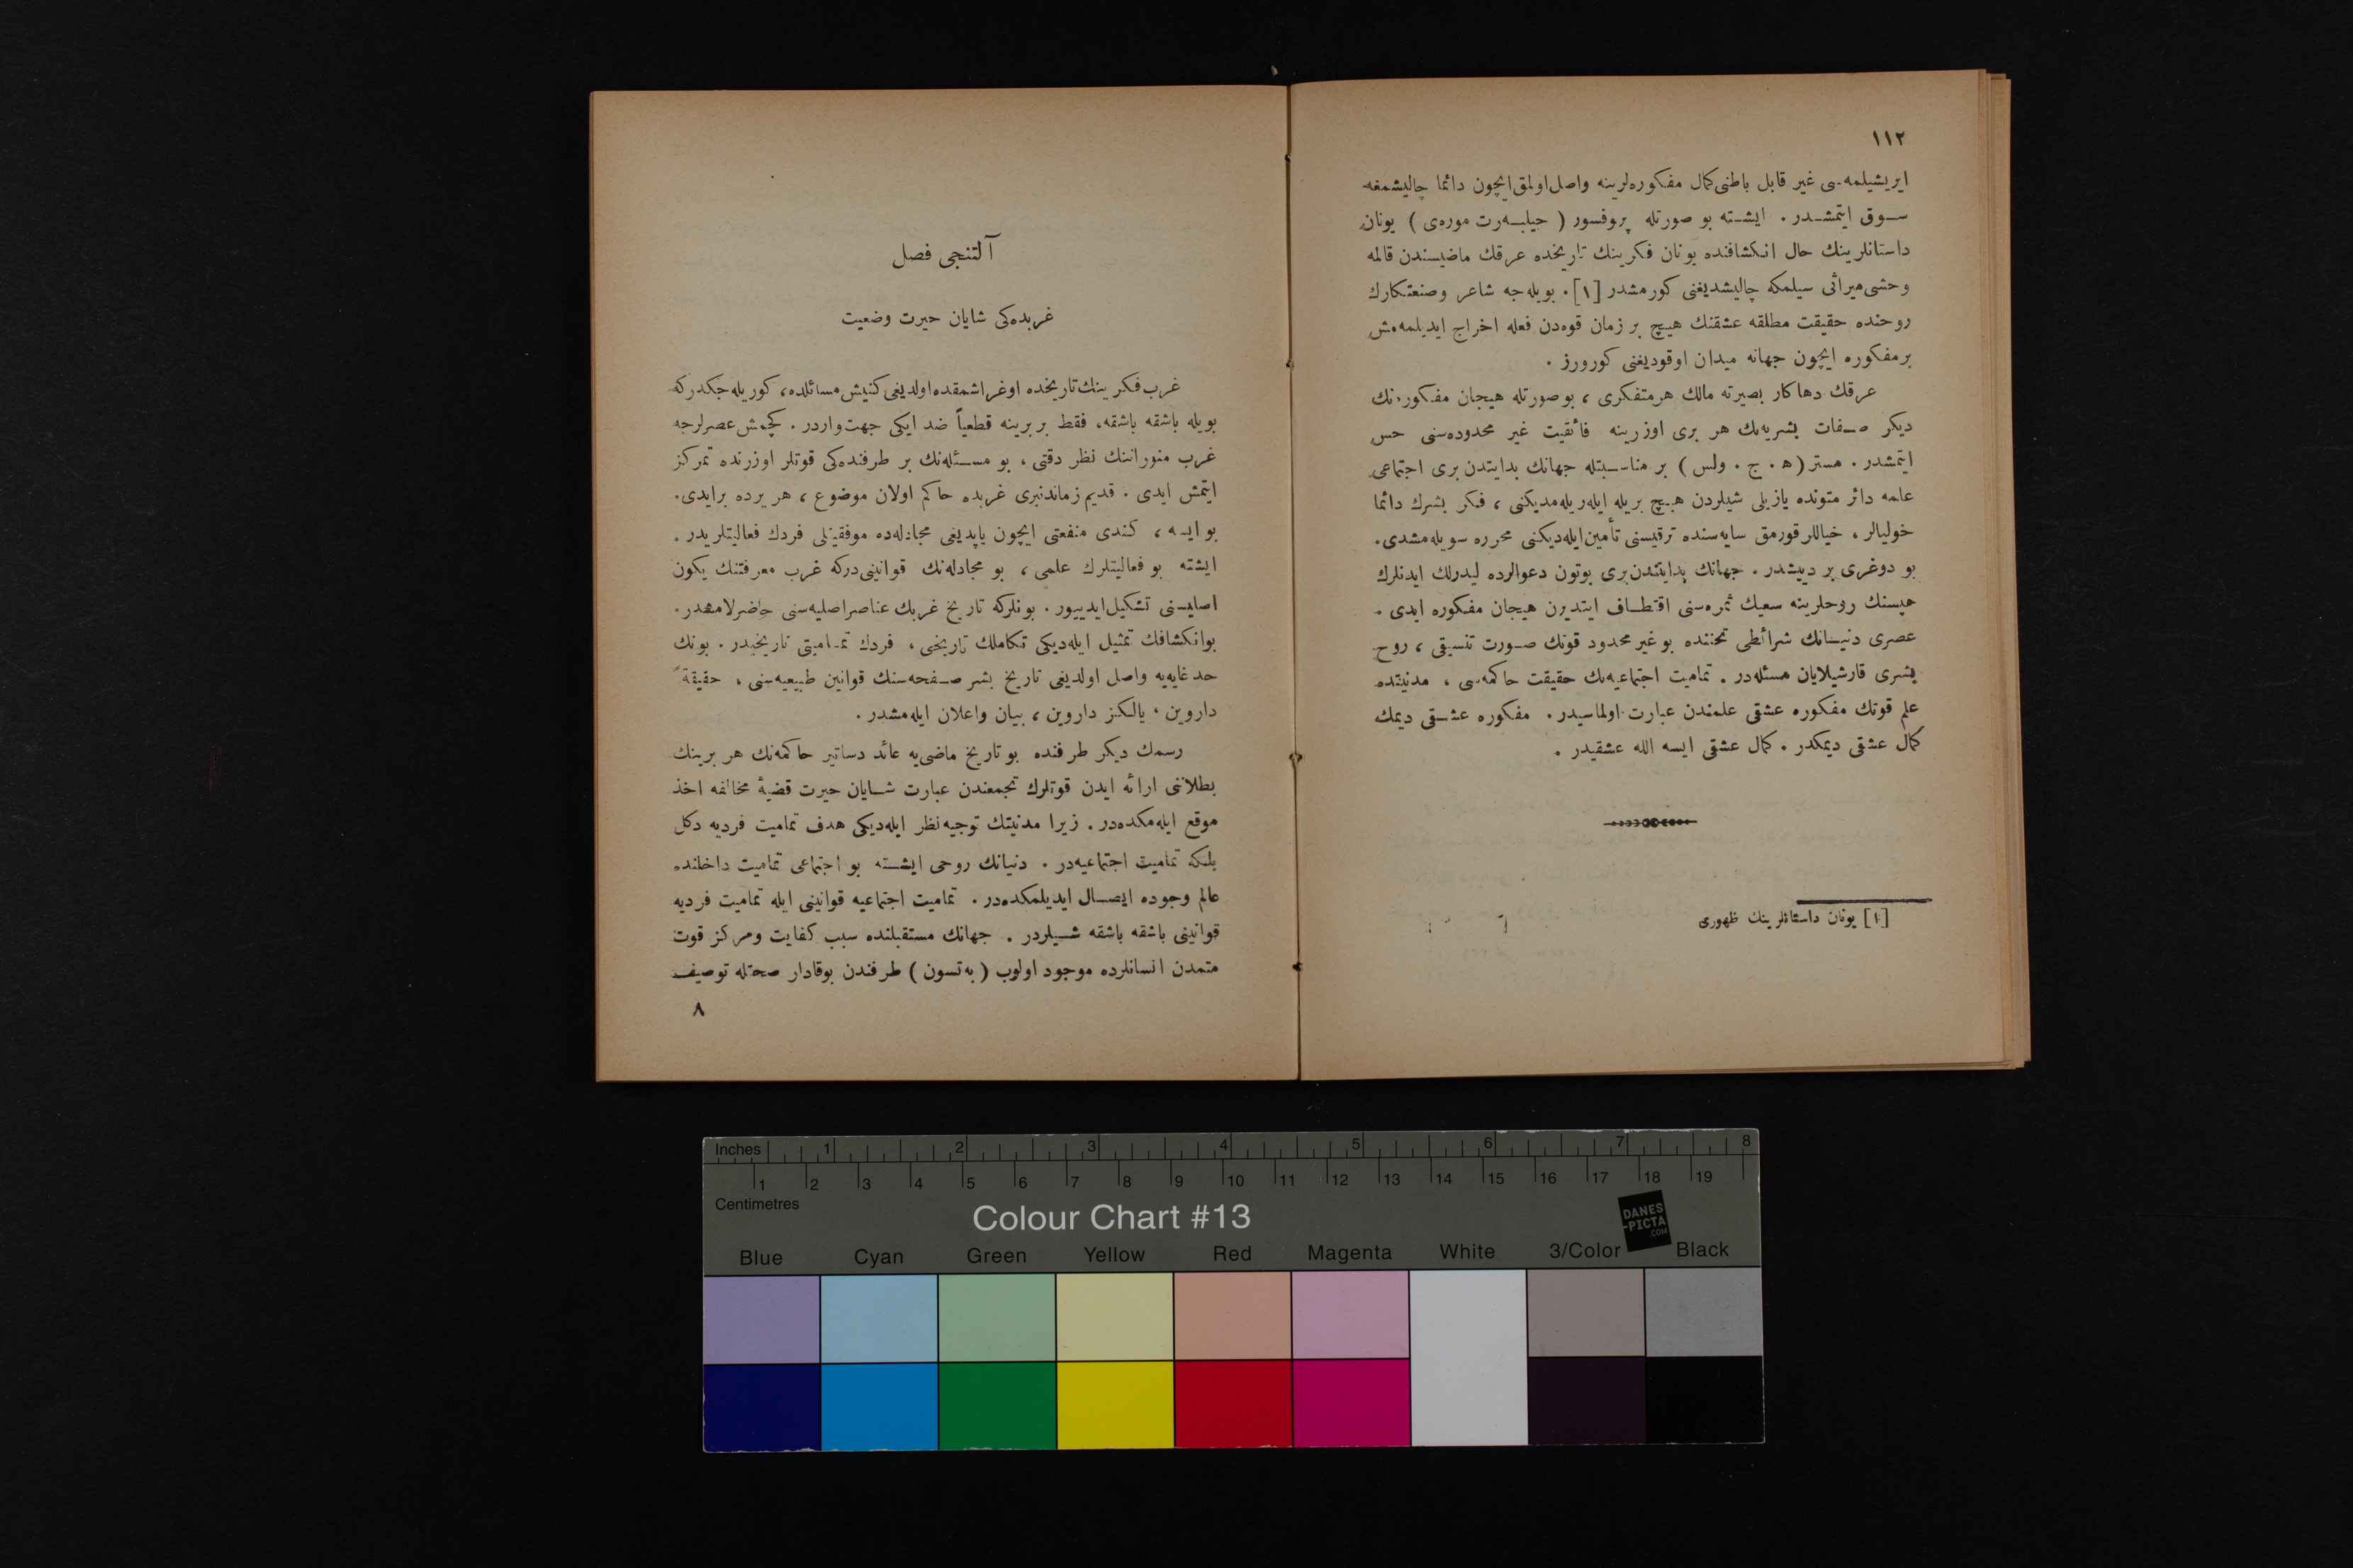 ١١٢
ايريشيلمه‌سى غير قابل باطنى كمال مفكوره‌لرينه واصل اولمق ايچون دائما چاليشمغه
سوق ايتمشدر . ايشته بو صورتله پروفسور ( جيلبه‌رت موره‌ى ) يونان
داستانلرينك حال انكشافنده يونان فكرينك تاريخده عرقك ماضيسندن قالمه
وحشى ميراثى سيلمكه چاليشديغنى كورمشدر [١] . بويله‌جه شاعر وصنعتكارك
روحنده حقيقت مطلقه عشقنك هيچ بر زمان قوه‌دن فعله اخراج ايديلمه‌مش
بر مفكوره ايچون جهانه ميدان اوقوديغنى كورورز .
عرقك دهاكار بصيرته مالك هر متفكرى ، بو صورتله هيجان مفكوره‌نك
ديكر صفات بشريه‌نك هر برى اوزرينه فائقيت غير محدوده‌سنى حس
ايتمشدر . مستر ( ه . ج . ولس ) بر مناسبتله جهانك بدايتدن برى اجتماعى
علمه دائر متونده يازيلى شيلردن هيچ بريله ايله‌ريله‌مديكنى ، فكر بشرك دائما
خوليالر ، خياللر قورمق سايه‌سنده ترقيسنى تأمين ايله‌ديكنى محرره سويله‌مشدى .
بو دوغرى بر دييشدر . جهانك بدايتندن برى بوتون دعوالرده ليدرلك ايدنلرك
هپسنك روحلرينه سعيك ثمره‌سنى اقتطاف ايتديرن هيجان مفكوره ايدى .
عصرى دنيانك شرائطى تحتنده بو غير محدود قوتك صورت تنسيقى ، روح
بشرى قارشيلايان مسئله‌در . تماميت اجتماعيه‌نك حقيقت حاكمه‌سى ، مدنيتده
علم قوتك مفكوره عشقى علمندن عبارت اولماسيدر . مفكوره عشقى ديمك
كمال عشقى ديمكدر . كمال عشقى ايسه الله عشقيدر .
[١] يونان داستانلرينك ظهورى
آلتنجى فصل
غربده‌كى شايان حيرت وضعيت
غرب فكرينك تاريخده اوغراشمقده اولديغى كنيش مسائلده ، كوريله‌جكدركه
بويله باشقه باشقه ، فقط بربرينه قطعياً ضد ايكى جهت واردر . كچمش عصرلرجه
غرب منورانك نظر دقتى ، بو مسئله‌نك بر طرفنده‌كى قوتلر اوزرنده تمركز
ايتمش ايدى . قديم زماندنبرى غربده حاكم اولان موضوع ، هر يرده برايدى .
بو ايسه ، كندى منفعتى ايچون ياپديغى مجادله‌ده موفقيتلى فردك فعاليتلريدر .
ايشته بو فعاليتلرك علمى ، بو مجادله‌نك قوانينى‌دركه غرب معرفتنك يكون
اصليسنى تشكيل ايدييور . بونلركه تاريخ غربك عناصر اصليه‌سنى حاضرلامشدر .
بو انكشافك تمثيل ايله‌ديكى تكاملك تاريخى ، فردك تماميتى تاريخيدر . بونك
حد غايه‌يه واصل اولديغى تاريخ بشر صفحه‌سنك قوانين طبيعيه‌سنى ، حقيقةً
داروين ، يالكز داروين ، بيان واعلان ايله‌مشدر .
رسمك ديكر طرفنده بو تاريخ ماضى‌يه عائد دساتير حاكمه‌نك هر برينك
بطلاننى ارائه ايدن قوتلرك تجمعندن عبارت شايان حيرت قضيهٔ مخالفه اخذ
موقع ايله‌مكده‌در . زيرا مدنيتك توجيه نظر ايله‌ديكى هدف تماميت فرديه دكل
بلكه تماميت اجتماعيه‌در . دنيانك روحى ايشته بو اجتماعى تماميت داخلنده
عالم وجوده ايصال ايديلمكده‌در . تماميت اجتماعيه قوانينى ايله تماميت فرديه
قوانينى باشقه باشقه شيلردر . جهانك مستقبلنده سبب كفايت ومركز قوت
متمدن انسانلرده موجود اولوب ( به‌تسون ) طرفندن بوقادار صحتله توصيف
٨
Inches 1 2 3 4 5 6 7 8
1 2 3 4 5 6 7 8 9 10 11 12 13 14 15 16 17 18 19
Centimetres
Colour Chart #13
DANES
-PICTA
.COM
Blue Cyan Green Yellow Red Magenta White 3/Color Black